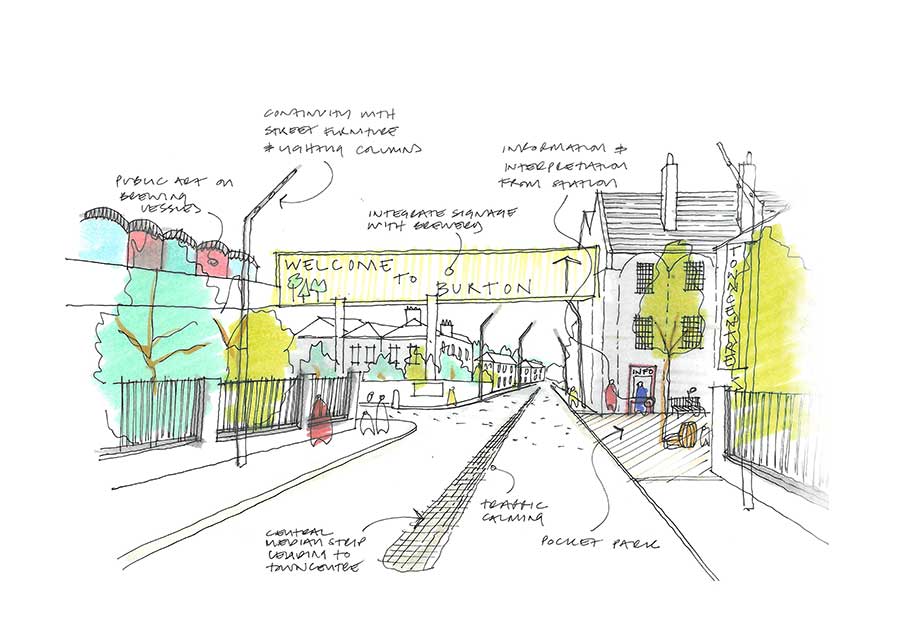 CONTINUITY WITH
STREET FURNITURE
& LIGHTING COLUMNS
PUBLIC ART ON
BREWING
VESSELS
INTEGRATE SIGNAGE
WITH BREWERY
INFORMATION &
INTERPRETATION
FROM STATION
WELCOME
TO
BURTON
TOWN CENTRE
INFO
CENTRAL
MEDIAN STRIP
LEADING TO
TOWN CENTRE
TRAFFIC
CALMING
POCKET PARK